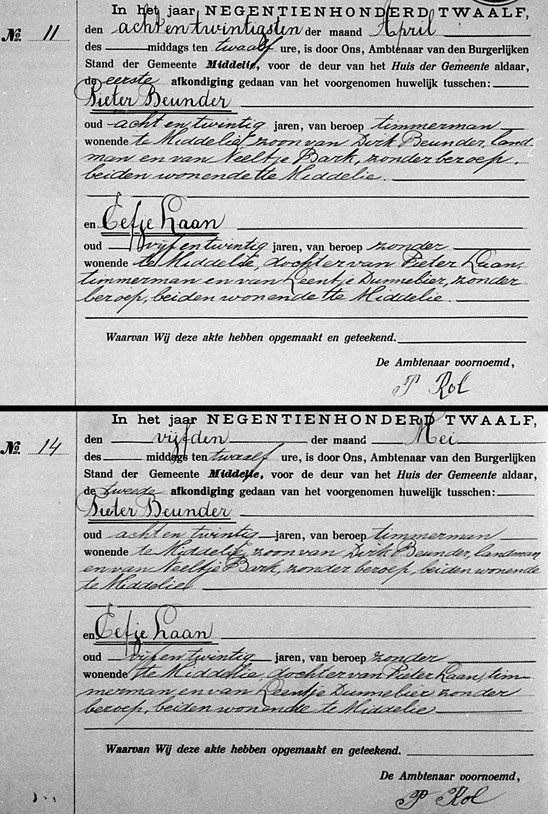 In het jaar NEGENTIENHONDERD TWAALF,
№. 11 den achtentwintigsten der maand April
des middags ten twaalf ure, is door Ons, Ambtenaar van den Burgerlijken
Stand der Gemeente Middelie, voor de deur van het Huis der Gemeente aldaar,
de eerste afkondiging gedaan van het voorgenomen huwelijk tusschen:
Pieter Beunder
oud acht en twintig jaren, van beroep timmerman
wonende te Middelie, zoon van Dirk Beunder, land-
man en van Neeltje Bark, zonder beroep,
beiden wonende te Middelie.
en Eefje Laan
oud vijf en twintig jaren, van beroep zonder
wonende te Middelie, dochter van Pieter Laan,
timmerman en van Leentje Dunnebier, zonder
beroep, beiden wonende te Middelie.
Waarvan Wij deze akte hebben opgemaakt en geteekend.
De Ambtenaar voornoemd,
P Kol
In het jaar NEGENTIENHONDERD TWAALF,
№. 14 den vijfden der maand Mei
des middags ten twaalf ure, is door Ons, Ambtenaar van den Burgerlijken
Stand der Gemeente Middelie, voor de deur van het Huis der Gemeente aldaar,
de tweede afkondiging gedaan van het voorgenomen huwelijk tusschen:
Pieter Beunder
oud acht en twintig jaren, van beroep timmerman
wonende te Middelie, zoon van Dirk Beunder, landman
en van Neeltje Bark, zonder beroep, beiden wonende
te Middelie
en Eefje Laan
oud vijf en twintig jaren, van beroep zonder
wonende te Middelie, dochter van Pieter Laan, tim-
merman en van Leentje Dunnebier zonder
beroep, beiden wonende te Middelie
Waarvan Wij deze akte hebben opgemaakt en geteekend.
De Ambtenaar voornoemd,
P Kol